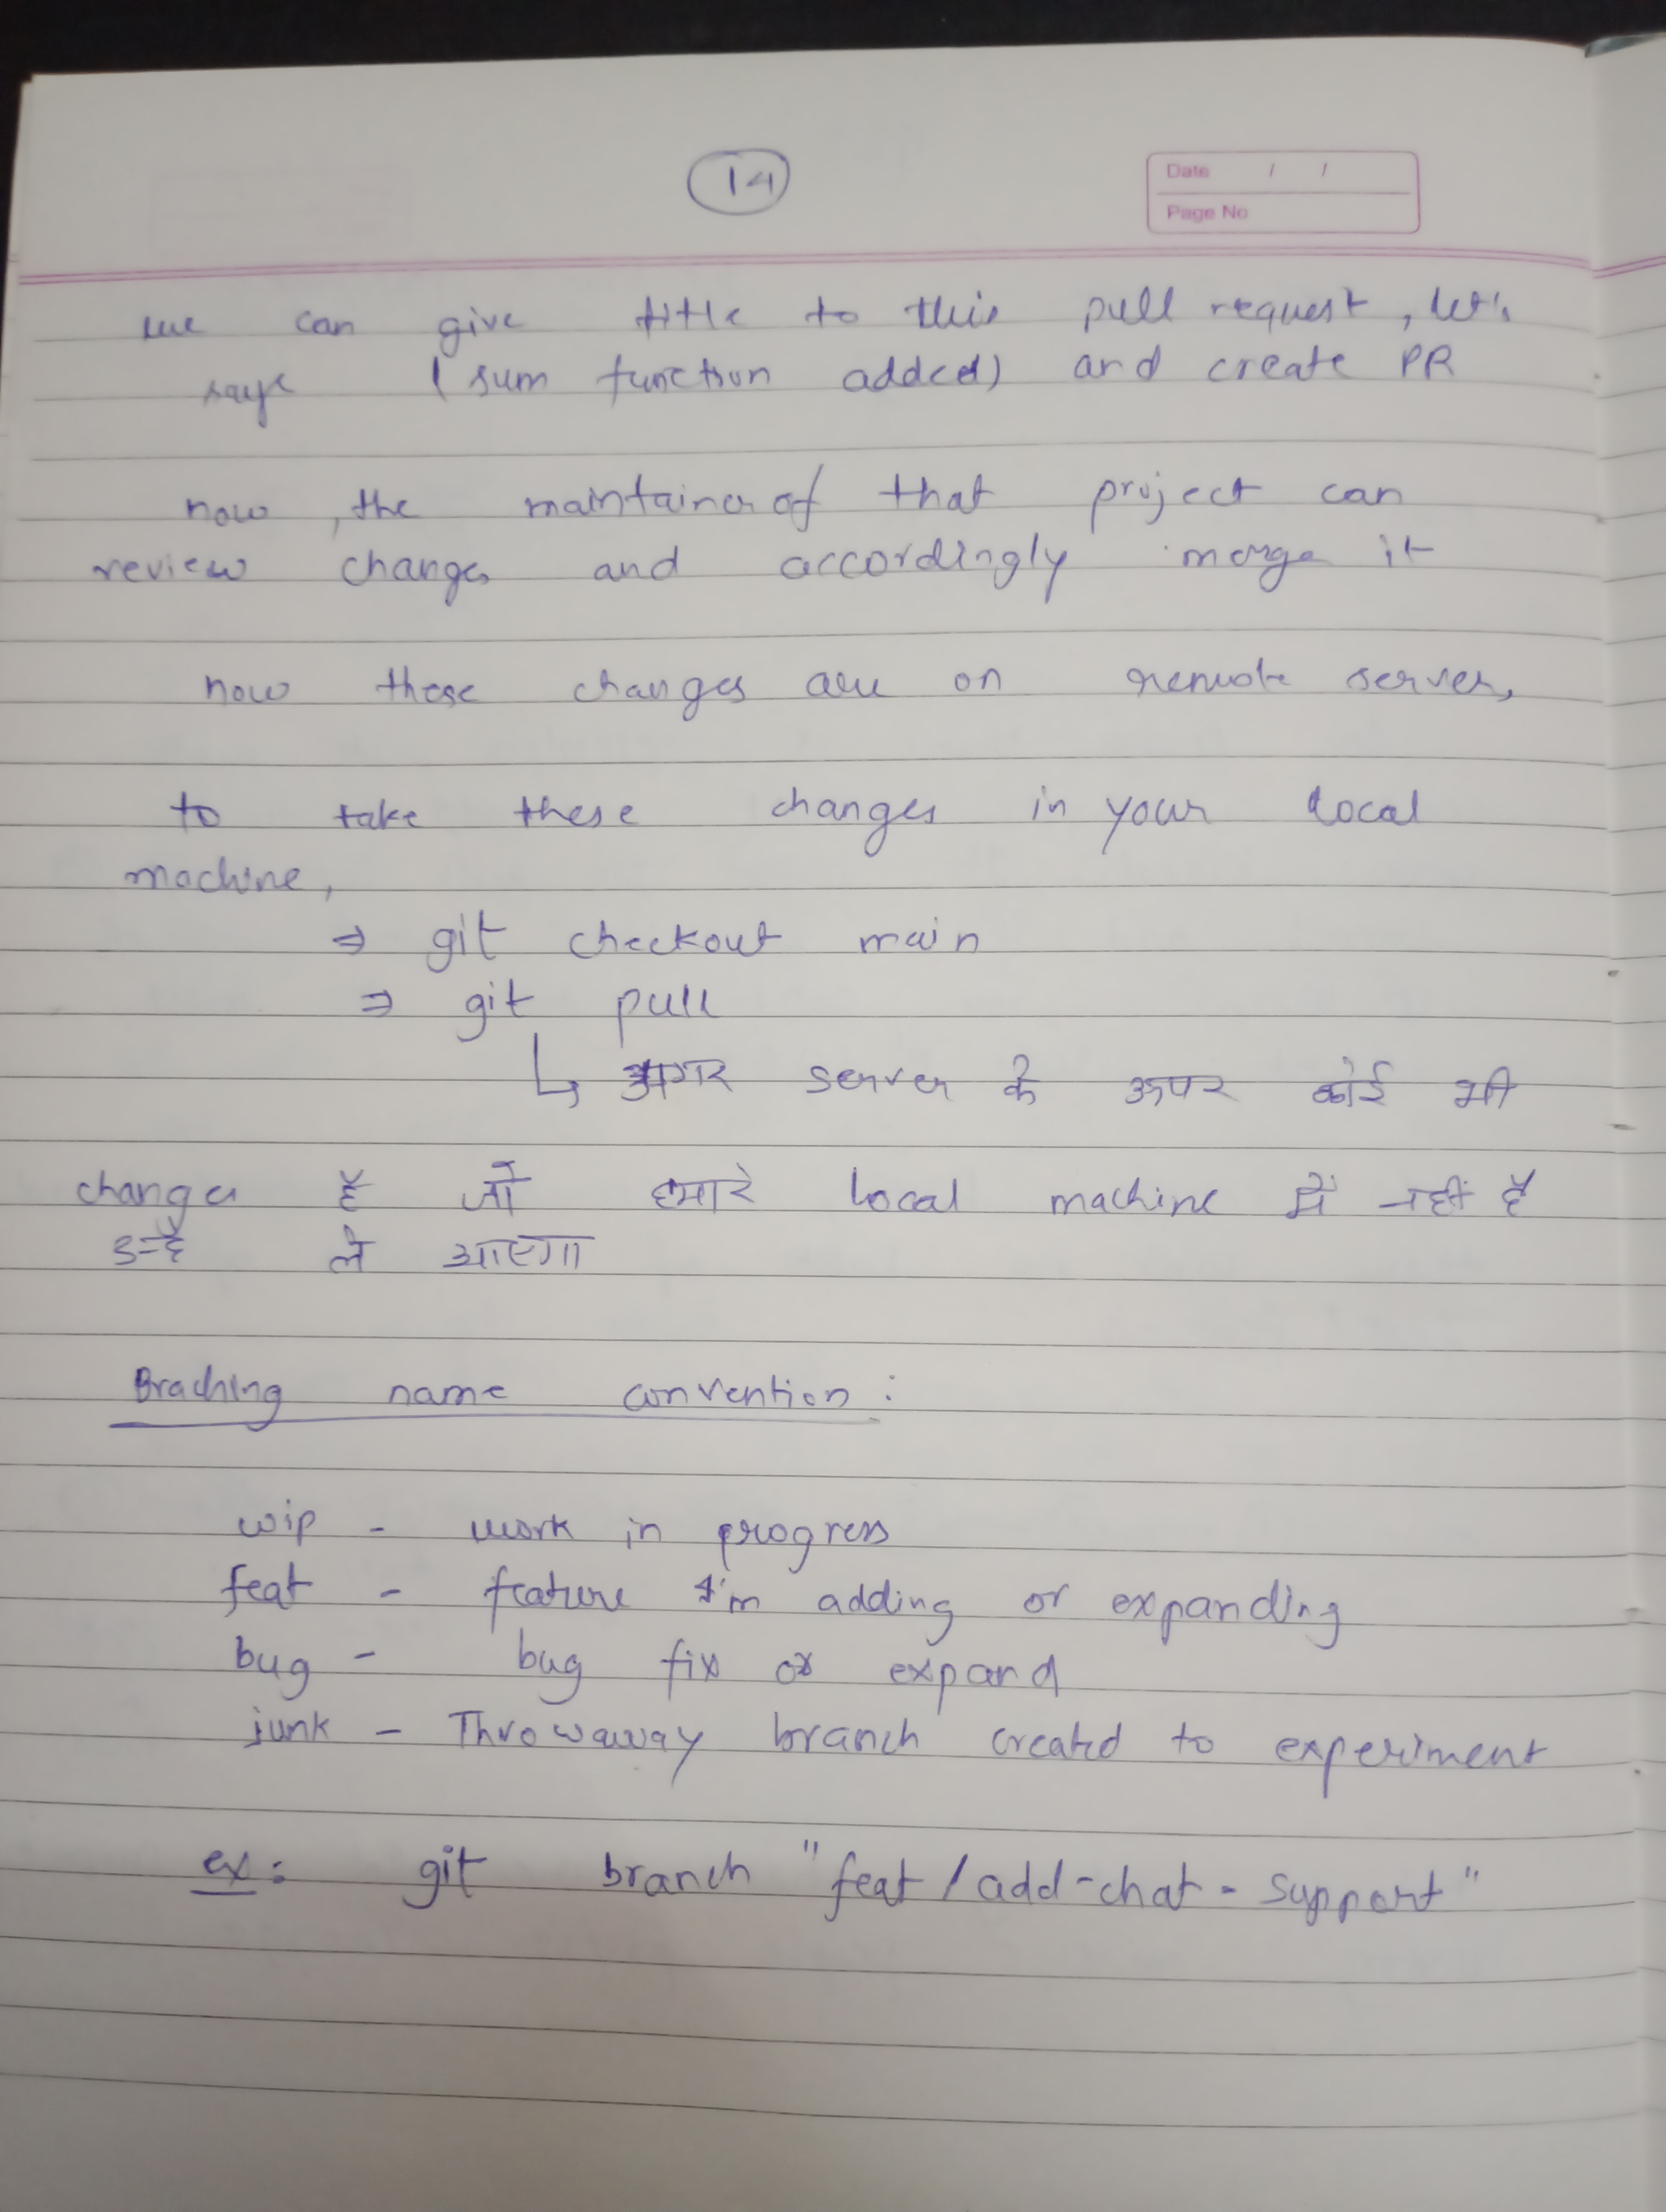 14
Date / /
Page No
we can give title to this pull request, let's
say (sum function added) and create PR
now, the maintainer of that project can
review changes and accordingly merge it
now these changes are on remote server,
to take these changes in your local
machine,
⇒ git checkout main
⇒ git pull
↳ अगर server के ऊपर कोई भी
changes है जो हमारे local machine में नहीं है
उन्हें ले आएगा
Braching name convention:
wip - work in progress
feat - feature I'm adding or expanding
bug - bug fix or expand
junk - Throwaway branch created to experiment
ex: git branch "feat/add-chat-support"